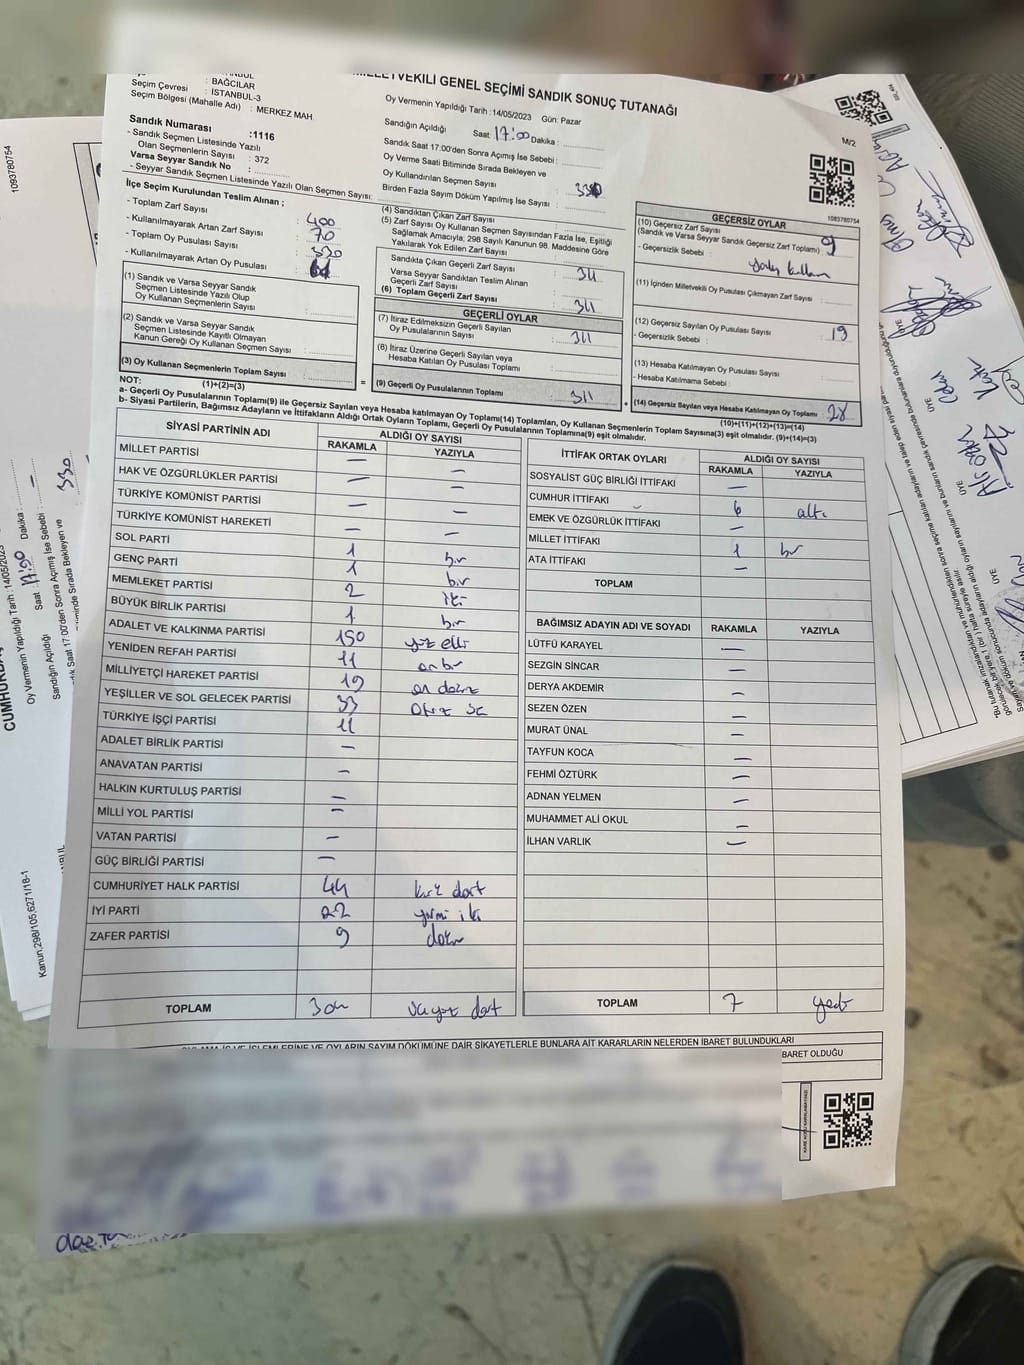 MİLLETVEKİLİ GENEL SEÇİMİ SANDIK SONUÇ TUTANAĞI
: BAĞCILAR
Seçim Çevresi : İSTANBUL-3
Seçim Bölgesi (Mahalle Adı) : MERKEZ MAH.
Oy Vermenin Yapıldığı Tarih :14/05/2023 Gün: Pazar
Sandığın Açıldığı Saat: 17:00 Dakika :
M/2
Sandık Numarası :1116
- Sandık Seçmen Listesinde Yazılı
Olan Seçmenlerin Sayısı : 372
Varsa Seyyar Sandık No :
- Seyyar Sandık Seçmen Listesinde Yazılı Olan Seçmen Sayısı:
Sandık Saat 17:00'den Sonra Açımış İse Sebebi :
Oy Verme Saati Bitiminde Sırada Bekleyen ve
Oy Kullandırılan Seçmen Sayısı :
Birden Fazla Sayım Döküm Yapılmış İse Sayısı :
1093780754
İlçe Seçim Kurulundan Teslim Alınan ;
- Toplam Zarf Sayısı : 400
- Kullanılmayarak Artan Zarf Sayısı : 70
- Toplam Oy Pusulası Sayısı :
- Kullanılmayarak Artan Oy Pusulası :
(1) Sandık ve Varsa Seyyar Sandık
Seçmen Listesinde Yazılı Olup
Oy Kullanan Seçmenlerin Sayısı :
(2) Sandık ve Varsa Seyyar Sandık
Seçmen Listesinde Kayıtlı Olmayan
Kanun Gereği Oy Kullanan Seçmen Sayısı :
(3) Oy Kullanan Seçmenlerin Toplam Sayısı :
(4) Sandıktan Çıkan Zarf Sayısı
(5) Zarf Sayısı Oy Kullanan Seçmen Sayısından Fazla İse, Eşitliği
Sağlamak Amacıyla; 298 Sayılı Kanunun 98. Maddesine Göre
Yakılarak Yok Edilen Zarf Sayısı :
Sandıkta Çıkan Geçerli Zarf Sayısı : 311
Varsa Seyyar Sandıktan Teslim Alınan
Geçerli Zarf Sayısı :
(6) Toplam Geçerli Zarf Sayısı : 311
GEÇERLİ OYLAR
(7) İtiraz Edilmeksizin Geçerli Sayılan
Oy Pusulalarının Sayısı : 311
(8) İtiraz Üzerine Geçerli Sayılan veya
Hesaba Katılan Oy Pusulası Toplamı :
= (9) Geçerli Oy Pusulalarının Toplamı : 311
GEÇERSİZ OYLAR
(10) Geçersiz Zarf Sayısı
(Sandık ve Varsa Seyyar Sandık Geçersiz Zarf Toplamı) : 9
- Geçersizlik Sebebi :
(11) İçinden Milletvekili Oy Pusulası Çıkmayan Zarf Sayısı :
(12) Geçersiz Sayılan Oy Pusulası Sayısı : 19
- Geçersizlik Sebebi :
(13) Hesaba Katılmayan Oy Pusulası Sayısı :
- Hesaba Katılmama Sebebi :
+ (14) Geçersiz Sayılan veya Hesaba Katılmayan Oy Toplamı : 28
(10)+(11)+(12)+(13)=(14)
NOT: (1)+(2)=(3)
a- Geçerli Oy Pusulalarının Toplamı(9) ile Geçersiz Sayılan veya Hesaba katılmayan Oy Toplamı(14) Toplamları, Oy Kullanan Seçmenlerin Toplam Sayısına(3) eşit olmalıdır. (9)+(14)=(3)
b- Siyasi Partilerin, Bağımsız Adayların ve İttifakların Aldığı Ortak Oyların Toplamı, Geçerli Oy Pusulalarının Toplamına(9) eşit olmalıdır.
SİYASİ PARTİNİN ADI ALDIĞI OY SAYISI
RAKAMLA YAZIYLA
MİLLET PARTİSİ —
HAK VE ÖZGÜRLÜKLER PARTİSİ — —
TÜRKİYE KOMÜNİST PARTİSİ — —
TÜRKİYE KOMÜNİST HAREKETİ — —
SOL PARTİ 1 —
GENÇ PARTİ 1 bir
MEMLEKET PARTİSİ 2 bir
BÜYÜK BİRLİK PARTİSİ 1 iki
ADALET VE KALKINMA PARTİSİ 150 bir
YENİDEN REFAH PARTİSİ 11 yüz elli
MİLLİYETÇİ HAREKET PARTİSİ 19 on bir
YEŞİLLER VE SOL GELECEK PARTİSİ 33 on dokuz
TÜRKİYE İŞÇİ PARTİSİ 11 otuz üç
ADALET BİRLİK PARTİSİ —
ANAVATAN PARTİSİ —
HALKIN KURTULUŞ PARTİSİ —
MİLLİ YOL PARTİSİ —
VATAN PARTİSİ —
GÜÇ BİRLİĞİ PARTİSİ —
CUMHURİYET HALK PARTİSİ 44 kırk dört
İYİ PARTİ 22 yirmi iki
ZAFER PARTİSİ 9 dokuz
TOPLAM 304 üçyüz dört
İTTİFAK ORTAK OYLARI ALDIĞI OY SAYISI
RAKAMLA YAZIYLA
SOSYALİST GÜÇ BİRLİĞİ İTTİFAKI —
CUMHUR İTTİFAKI 6 altı
EMEK VE ÖZGÜRLÜK İTTİFAKI —
MİLLET İTTİFAKI 1 bir
ATA İTTİFAKI —
TOPLAM
BAĞIMSIZ ADAYIN ADI VE SOYADI RAKAMLA YAZIYLA
LÜTFÜ KARAYEL —
SEZGİN SİNCAR —
DERYA AKDEMİR —
SEZEN ÖZEN —
MURAT ÜNAL —
TAYFUN KOCA —
FEHMİ ÖZTÜRK —
ADNAN YELMEN —
MUHAMMET ALİ OKUL —
İLHAN VARLIK —
TOPLAM 7 yedi
OYLAMA İŞ VE İŞLEMLERİNE VE OYLARIN SAYIM DÖKÜMÜNE DAİR ŞİKAYETLERLE BUNLARA AİT KARARLARIN NELERDEN İBARET BULUNDUKLARI
BARET OLDUĞU
1093780754
Oy Vermenin Yapıldığı Tarih :14/05/2023
Sandığın Açıldığı Saat : 17:00 Dakika : —
Kanun:298/105,6271/18-1
ÜYE
ÜYE
ÜYE
ÜYE